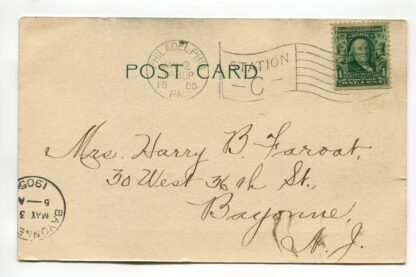 POST CARD
PHILADELPHIA
2
1905
PA.
STATION
C
Mrs. Harry B. Faroat,
30 West 36th St.,
Bayonne,
N. J.
BAYONNE
MAY 3
5 A
1905